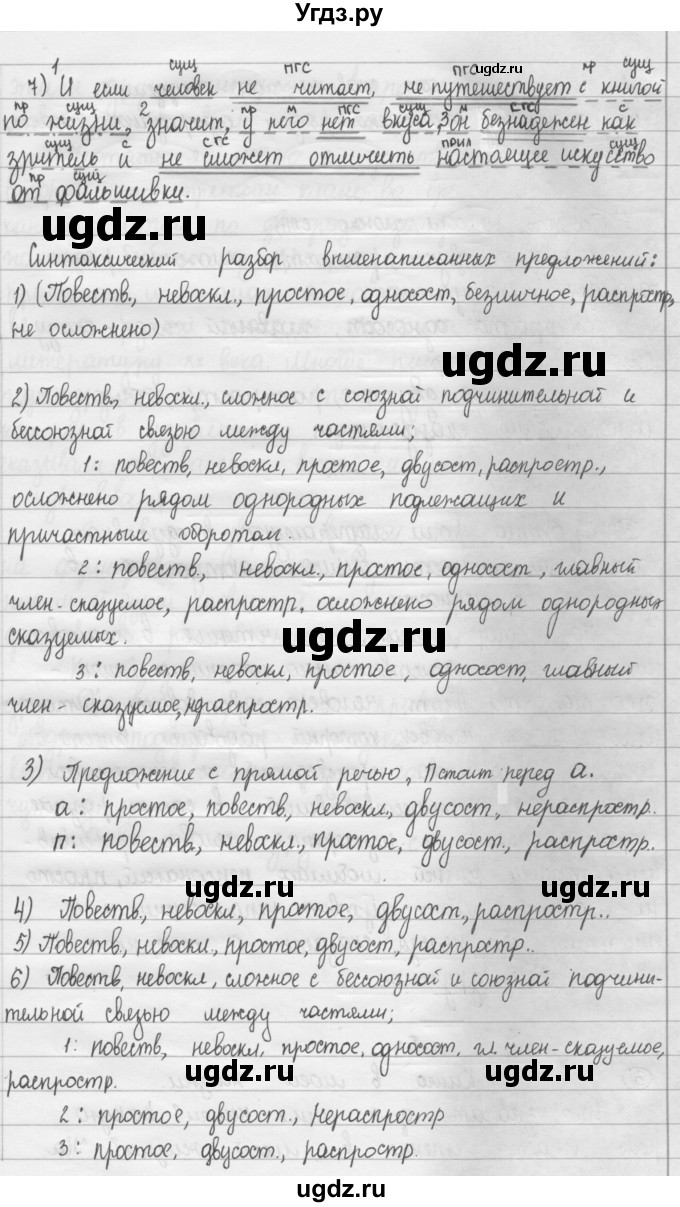 Угдз.ру
1 сущ ПГС ПГС пр сущ
7) И если человек не читает, не путешествует с книгой
пр сущ 2 пр м ПГС сущ СГС с
по жизни, значит, у него нет вкуса, 3 он безнадежен как
сущ с СГС прил сущ
зритель и не сможет отличить настоящее искусство
пр сущ
от фальшивки.
Синтаксический разбор вышенаписанных предложений:
1) (Повеств., невоскл., простое, односост, безличное, распростр,
не осложнено)
2) Повеств., невоскл., сложное с союзной подчинительной и
бессоюзной связью между частями;
1: повеств, невоскл, простое, двусост, распростр.,
осложнено рядом однородных подлежащих и
причастным оборотом.
2: повеств, невоскл, простое, односост, главный
член-сказуемое, распростр, осложнено рядом однородных
сказуемых.
3: повеств, невоскл, простое, односост, главный
член - сказуемое, нераспростр.
3) Предложение с прямой речью, П стоит перед а.
а: простое, повеств, невоскл, двусост, нераспростр.
п: повеств, невоскл, простое, двусост., распростр.
4) Повеств, невоскл, простое, двусост, распростр..
5) Повеств, невоскл, простое, двусост, распростр..
6) Повеств, невоскл, сложное с бессоюзной и союзной подчини-
тельной связью между частями;
1: повеств, невоскл, простое, односост, гл. член-сказуемое,
распростр.
2: простое, двусост., нераспростр
3: простое, двусост., распростр.
ugdz.ru
ugdz.ru
ugdz.ru
ugdz.ru
ugdz.ru
ugdz.ru
ugdz.ru
ugdz.ru
ugdz.ru
ugdz.ru